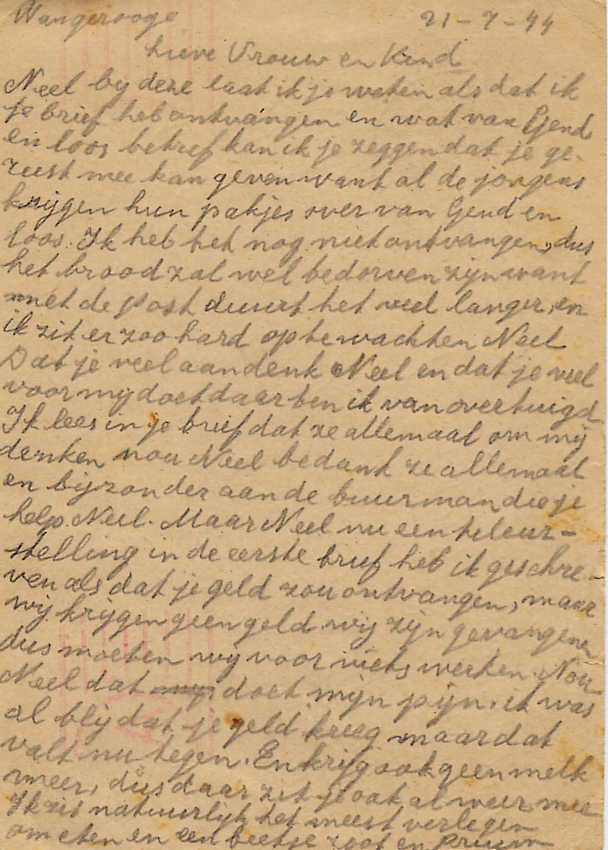 Wangerooge 21-7-44
Lieve Vrouw en Kind
Neel by deze laat ik je weten als dat ik
je brief heb ontvangen en wat van Gend
en loos betref kan ik je zeggen dat je ge-
reest mee kan geven want al de jongens
krijgen hun pakjes over van Gend en
loos. Ik heb het nog niet ontvangen, dus
het brood zal wel bedorven zijn want
met de post duurt het veel langer, en
ik zit er zoo hard op te wachten Neel
Dat je veel aan denk Neel en dat je veel
voor mij doet daar ben ik van overtuigd
Ik lees in je brief dat ze allemaal om mij
denken nou Neel bedank ze allemaal
en byzonder aan de buurman die je
help Neel. Maar Neel nu een teleur-
stelling in de eerste brief heb ik geschre-
ven als dat je geld zou ontvangen, maar
wy krygen geen geld wij zijn gevangenen
dus moeten wy voor niets werken. Nou
Neel dat doet mijn pijn, ik was
al blij dat je geld kreeg maar dat
valt nu tegen. En krijg ook geen melk
meer, dus daar zit je ook al weer mee
Ik zit natuurlijk het meest verlegen
om eten en een beetje zoot en Pruim-